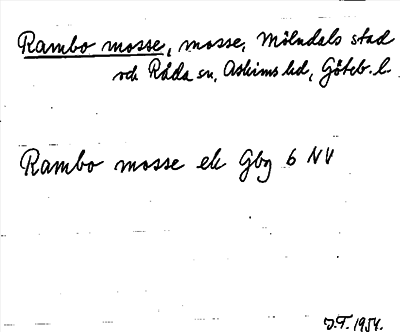 Rambo mosse, mosse, Mölndals stad
och Råda sn, Askims hd, Göteb. l.
Rambo mosse ek Gbg 6 NV
J.T. 1954.